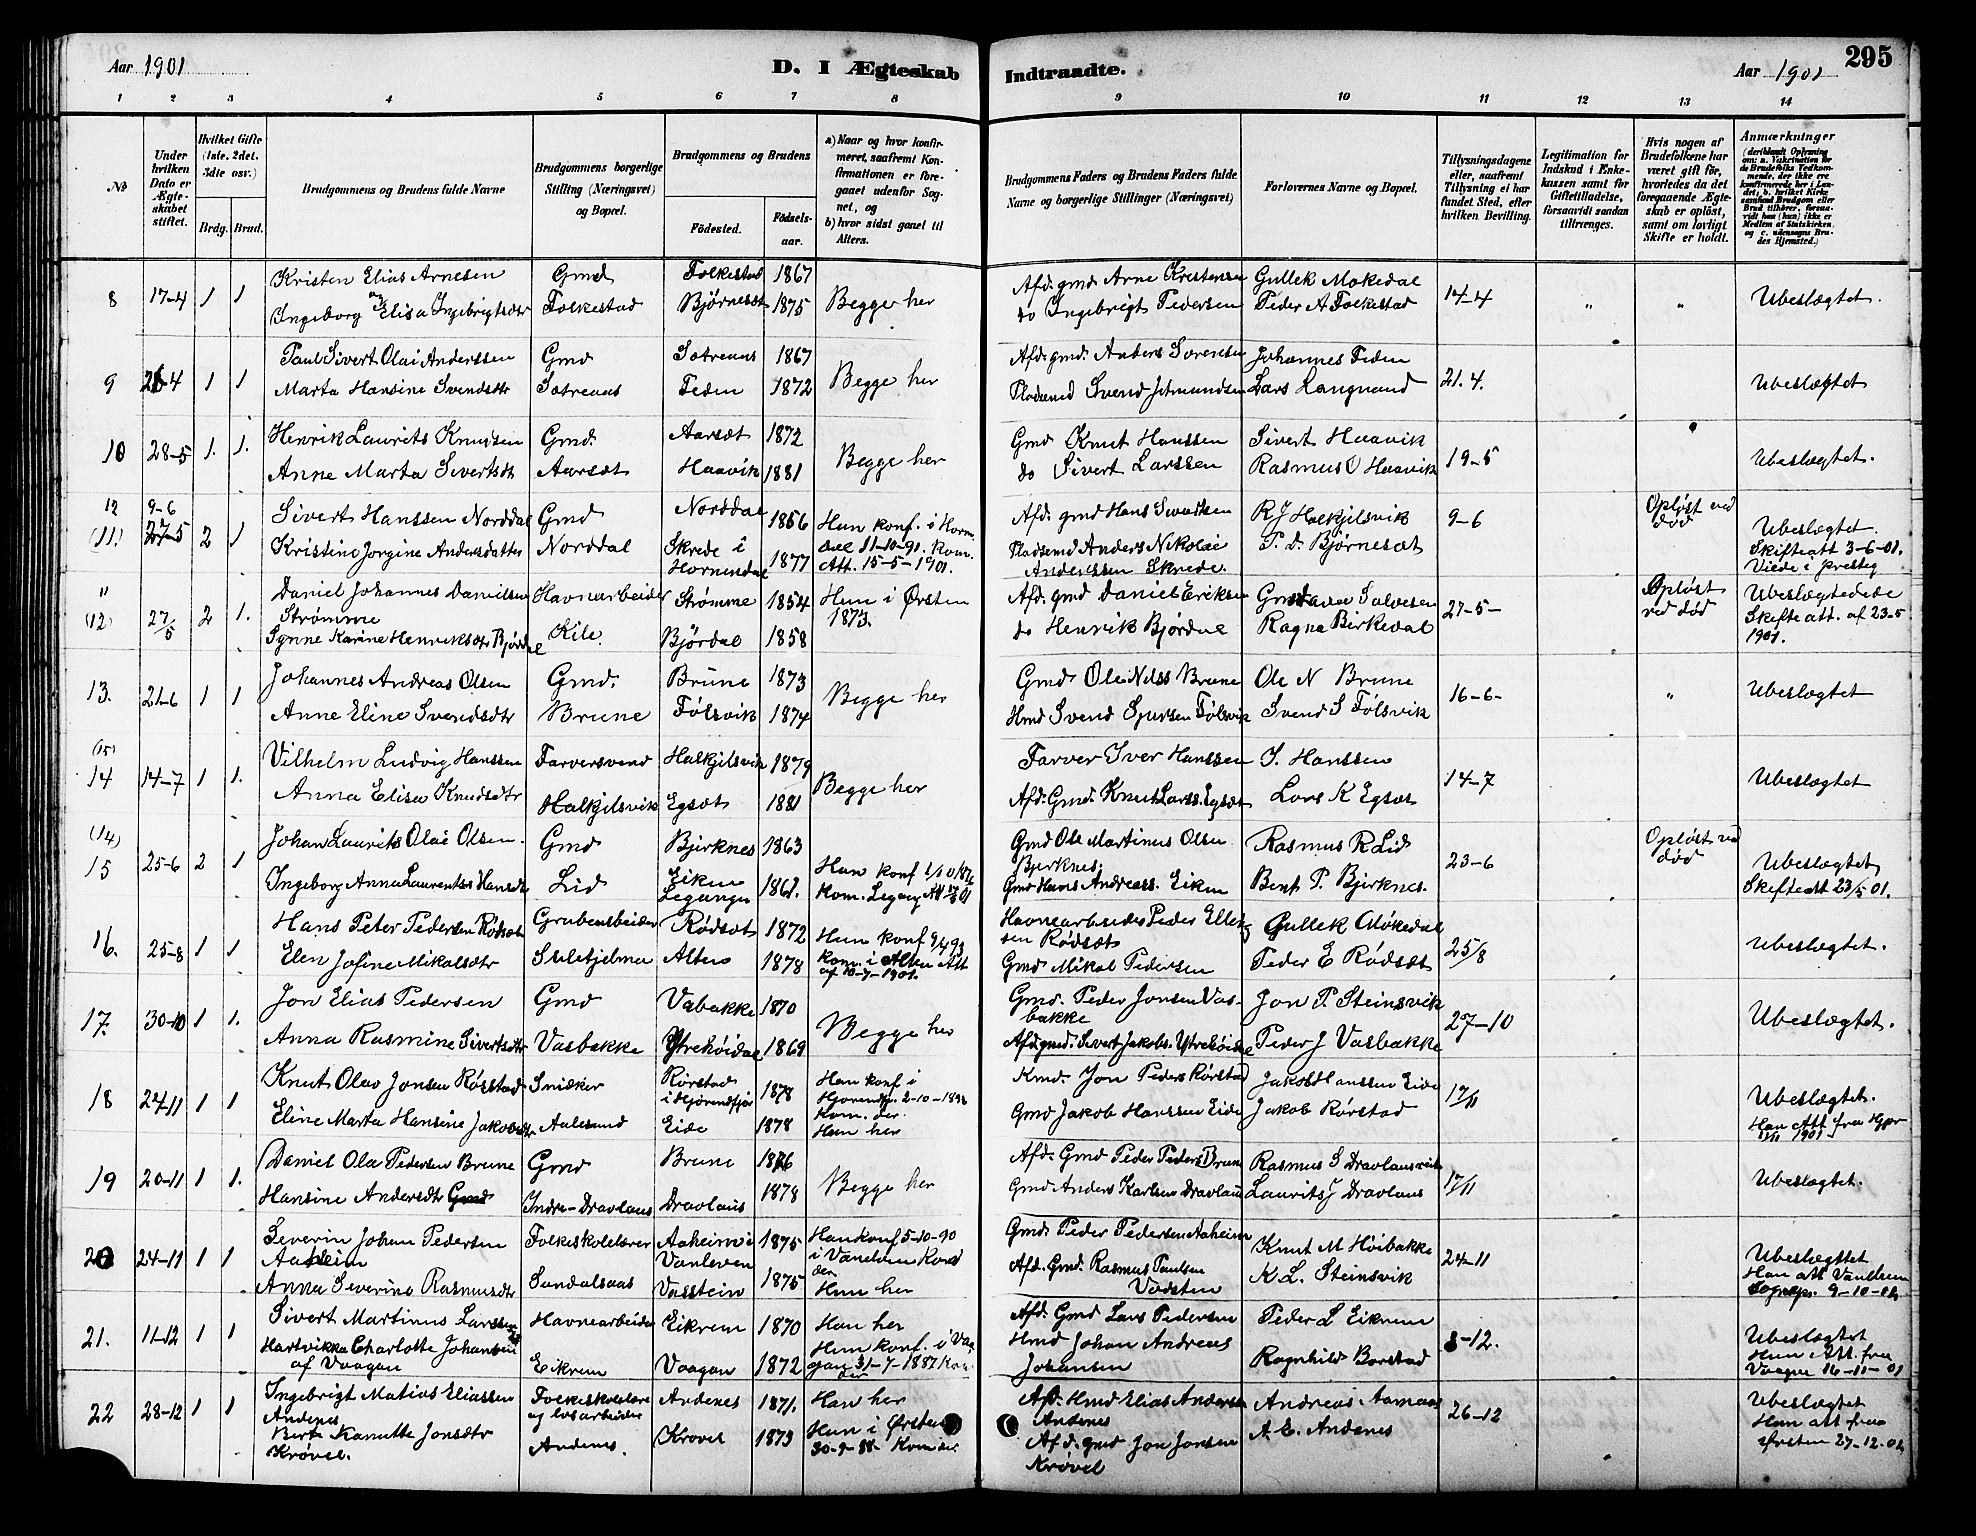 295
Aar 1901
D. I Ægteskab
Indtraadte.
Aar 1901
1 2 3 4 5 6 7 8 9 10 11 12 13 14
No
Under hvilken Dato er Ægteskabet stiftet.
Hvilket Gifte (1ste, 2det, 3die osv.)
Brdg. Brud.
Brudgommens og Brudens fulde Navne
Brudgommens borgerlige Stilling (Næringsvei) og Bopæl.
Brudgommens og Brudens
Fødested.
Fødselsaar.
a) Naar og hvor konfirmeret, saafremt Konfirmationen er foregaaet udenfor Sognet, og
b) hvor sidst gaaet til Alters.
Brudgommens Faders og Brudens Faders fulde Navne og borgerlige Stillinger (Næringsvei)
Forlovernes Navne og Bopæl.
Tillysningsdagene eller, saafremt Tillysning ei har fundet Sted, efter hvilken Bevilling.
Legitimation for Indskud i Enkekassen samt for Giftetilladelse, forsaavidt saadan tiltrænges.
Hvis nogen af Brudefolkene har været gift før, hvorledes da det foregaaende Ægteskab er opløst, samt om lovligt Skifte er holdt.
Anmærkninger
8 17-4 1 1 Kristen Elias Arnesen Gmd Folkestad 1867 Begge her Afd. gmd Arne Kristensen Gullek Møkedal 14-4 " " Ubeslægtet.
Ingeborg Elisa Ingebrigtsdtr Folkestad Bjørneset 1875 do Ingebrigt Pedersen Peder A Folkestad
9 26-4 1 1 Paul Sivert Olai Anderssen Gmd Sætreaas 1867 Begge her Afd. gmd. Anders Sørensen Johannes Feden 21.4. Ubeslægtet
Marta Hansine Svendsdtr Sætreaas Feden 1872 Pladsmd Svend Lars Langnand
10 28-5 1. 1. Henrik Laurits Knudsen Gmd. Aarsæt 1872 Begge her Gmd Knut Hanssen Sivert Haavik 19-5 Ubeslægtet.
Anne Marta Sivertsdtr Aarsæt Haavik 1881 do Sivert Larssen Rasmus O Haavik
12 9-6
(11.) 27-5 2 1 Sivert Hanssen Norddal Gmd Norddal 1856 Hun konf. i Horndal 11-10-91. Kom. Att. 15-5-1901. Afd. gmd Hans Sivertsen R J Halkjilsvik 9-6 Opløst ved død Ubeslægtet. Skifteatt 3-6-01. Viede i presteg
Kristine Jorgine Andersdatter Norddal Skrede i Hornindal 1877 Pladsemd Anders Nikolai Anderssen Skrede. P. A. Bjørneset
"
(12) 27/5 2 1. Daniel Johannes Danielsen Strømme Havnearbeider Strømme 1854 Hun i Ørsten 1873. Afd. gmd Daniel Eriksen Salvesen 27-5- Opløst ved død Ubeslægtede Skifte att. af 23-5 1901.
Synne Karine Henriksdtr Bjørdal Kile. Bjørdal 1858 do Henrik Bjørdal Ragna Birkedal
13. 21-6 1 1 Johannes Andreas Olsen Gmd. Brune 1873 Begge her Gmd Ole Nilss Brune Ole N Brune 16-6- " Ubeslægtet
Anne Eline Svendsdtr Brune Følsvik 1874 Hmd Svend Sjursen Følsvik Svend S Følsvik
(15)
14 14-7 1 1. Vilhelm Ludvig Hanssen Farversvend Halkjilsvik 1879 Begge her Farver Iver Hanssen I. Hanssen 14-7 Ubeslægtet
Anna Elisa Knudsdtr Halkjilsvik Egsæt 1881 Afd. Gmd. Knut Larss. Egsæt Lars K Egsæt
(14)
15 25-6 2 1 Johan Laurits Olai Olsen. Gmd Bjerknes 1863 Gmd Ole Martinus Olsen Bjerknes. Rasmus R Lid 23-6 Opløst ved død Ubeslægtet Skifteatt 23/5 01.
Ingeborg Anna Laurentse Hansdtr Lid Eiken Leganger Gmd Hans Andreass. Eiken Bent P. Bjerknes.
16. 25-8 1 1 Hans Peter Pedersen Rødsæt Grubearbeider Rødsæt 1872 Hun konf 9/4 93 kom. i Alten Att af 10-7-1901. Havnearbeider Peder Ellefsen Rødsæt Gullek Møkedal 25/8 Ubeslægtet.
Elen Josine Mikalsdtr Suletjelma Alten 1878 Gmd Mikal Pedersen Peder E Rødsæt
17. 30-10 1 1. Jon Elias Pedersen Gmd Vasbakke 1870 Begge her Gmd. Peder Jonsen Vasbakke Jon P. Steinsvik 27-10 Ubeslægtet.
Anna Rasmine Sivertsdtr Vasbakke Ytrehøidal 1869 Afd. gmd. Sivert Jakobs. Ytrehøidal Peder J Vasbakke
18 24-11 1 1 Knut Olav Jonsen Rørstad Snidker Rørstad i Hjørendfjor 1878 Han konf i Hjørendfj. 2-10-1892 Kom. der. Kmd. Jon Peders Rørstad Jakob Hanssen Eide 17/11 Ubeslægtet. Han Att fra Hjør 11/11 1901
Eline Marta Hansine Jakobsdtr Aalesund Eide 1878 Hun her Gmd Jakob Hanssen Eide Jakob Rørstad
19 20-11 1 1. Daniel Ola Pedersen Brune Gmd Brune 1876 Begge her Afd. Gmd Peder Peders Brune Rasmus S Dravlausvik 17/11 Ubeslægtet.
Hansine Andersdtr Indre-Dravlaus Dravlaus 1878 Gmd Anders Karlsen Dravlaus Laurits J Dravlaus
20 24-11 1 1 Severin Johan Pedersen Aaheim Folkeskolelærer Aaheim i Vanelven 1875 Han konf 5-10-90 i Vanelven Kom der Gmd. Peder Pedersen Aaheim Knut M Høibakke 24-11 Ubeslægtet Han att Vanelven Sognepr. 9-10-01
Anna Severine Rasmusdtr Sandalsaas Vasstein 1875 Hun her Afd. Gmd. Rasmus Paulsen Vadsten K. L. Steinsvik
21. 11-12 1 1 Sivert Martinus Larssen Havnearbeider Eikrem 1870 Han her Afd. Gmd Lars Pedersen Peder L Eikrem 8-12. Ubeslægtet Hun Att. fra Vaagan 16-11-01
Hartvikka Charlotte Johansen af Vaagan Eikrem Vaagan 1872 Hun konf. i Vaagan 31-7-1887 Kom. der Hmd Johan Andreas Johansen Ragnhild Barstad
22 28-12 1 1 Ingebrigt Matias Eliassen Andenes Folkeskolelære og løsarbeider Andenes 1871. Han her Afd. Hmd Elias Andersen Andenes Andreas Aamaas 26-12 Ubeslægtet Hun att fra Ørsten 27-12.01
Berte Kanutte Jonsdtr Krøvel. Andenes. Krøvel 1873 Hun i Ørsten 30-9-88- Kom der. Afd. gmd Jon Jonsen Krøvel A. E. Andenes